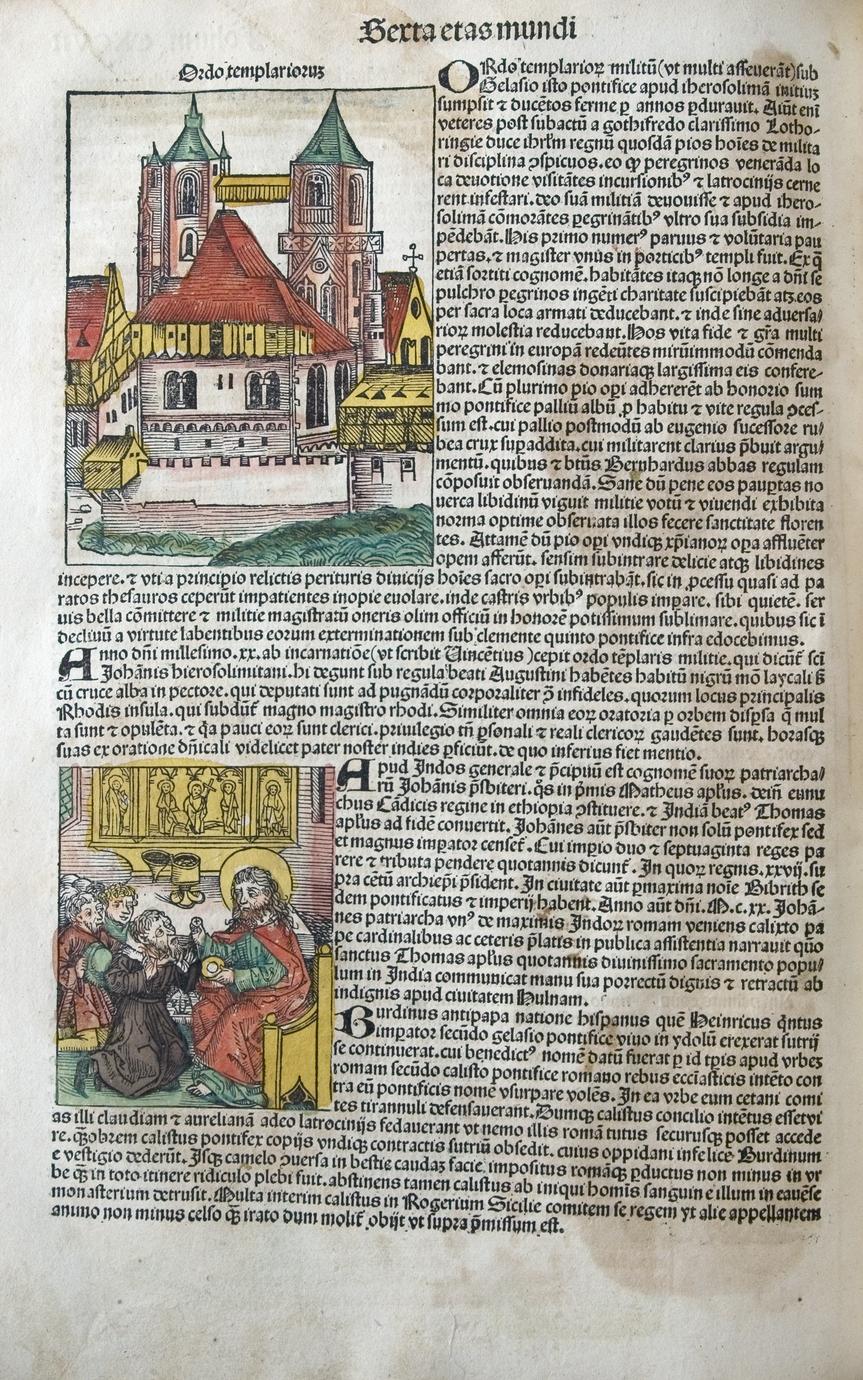 Sexta etas mundi
Ordo templarioruʒ
ORdo templarioꝝ militū(vt multi asseuerāt)sub
Gelasio isto pontifice apud iherosolimā initiuʒ
sumpsit ⁊ ducētos ferme ꝑ annos ꝑdurauit. Aiūt eni
veteres post subactū a gothifredo clarissimo Lotho-
ringie duce ihrl̄m regnū quosdā pios hoīes de milita
ri disciplina ɔspicuos.eo ꝙ peregrinos venerāda lo
ca deuotione visitātes incursionibꝰ ⁊ latrocinijs cerne
rent infestari.deo suā militiā deuouisse ⁊ apud ihero-
solimā cōmorātes ꝑegrinātibꝰ vltro sua subsidia im-
pēdebāt.His primo numerꝰ paruus ⁊ volūtaria pau
pertas.⁊ magister vnus in porticibꝰ templi fuit. Ex q̄
etiā sortiti cognomē.habitātes itaqꝫ nō longe a dn̄i se
pulchro ꝑegrinos ingēti charitate suscipiebāt atqꝫ.eos
per sacra loca armati deducebant.⁊ inde sine aduersa/
rioꝝ molestia reducebant.Hos vita fide ⁊ gr̄a multi
peregrini in europā redeūtes mirūimmodū cōmenda
bant.⁊ elemosinas donariaqꝫ largissima eis confere-
bant. Cū plurimo pio oꝑi adhererēt ab honorio sum
mo pontifice palliū albū ꝓ habitu ⁊ vite regula ɔces-
sum est.cui pallio postmodū ab eugenio sucessore ru/
bea crux suꝑaddita.cui militarent clarius p̄buit argu/
mentū.quibus ⁊ btūs Bernhardus abbas regulam
cōposuit obseruandā. Sane dū pene eos pauptas no
uerca libidinū viguit militie votū ⁊ viuendi exhibita
norma optime obseruata illos fecere sanctitate floren
tes. Attamē dū pio oꝑi vndiqꝫ xp̄ianoꝝ oꝑa affluēter
opem afferūt. sensim subintrare delicie atqꝫ libidines
incepere.⁊ vti a principio relictis perituris diuicijs hoīes sacro oꝑi subintrabāt.sic in ꝓcessu quasi ad pa
ratos thesauros ceperūt impatientes inopie euolare.inde castris vrbibꝰ populis imꝑare. sibi quietē. ser
uis bella cōmittere ⁊ militie magistratū oneris olim officiū in honorē potissimum sublimare.quibus sic ī
decliuū a virtute labentibus eorum exterminationem sub clemente quinto pontifice infra edocebimus.
Anno dn̄i millesimo.xx.ab incarnatiōe(vt scribit Vincētius)cepit ordo tēplaris militie.qui dicūt̄ sc̄i
Johānis hierosolimitani.hi degunt sub regula beati Augustini habētes habitū nigrū mō laycali ꝫ
cū cruce alba in pectore.qui deputati sunt ad pugnādū corporaliter ɔ̄ infideles.quorum locus principalis
Rhodis insula.qui subdūt̄ magno magistro rhodi.Similiter omnia eoꝝ oratoria ꝑ orbem disꝑsa q̄ mul
ta sunt ⁊ opulēta.⁊ q̄a pauci eoꝝ sunt clerici.priuilegio tn̄ ꝑsonali ⁊ reali clericoꝝ gaudētes sunt. horasqꝫ
suas ex oratione dn̄icali videlicet pater noster indies ꝑficiūt.de quo inferius fiet mentio.
Apud Indos generale ⁊ p̄cipuū est cognomē suoꝝ patriarcha/
rū Johānis p̄sbiteri.q̄s in p̄mis Matheus apl̄us. dein̄ eunu
chus Cādicis regine in ethiopia ɔstituere.⁊ Indiā beatꝰ Thomas
apl̄us ad fidē conuertit. Johānes aūt p̄sbiter non solū pontifex sed
et magnus imꝑator censet̄. Cui imꝑio duo ⁊ septuaginta reges pa
rere ⁊ tributa pendere quotannis dicunt̄. In quoꝝ regnis.xxvij.su
pra cētū archiepi p̄sident. In ciuitate aūt ꝑmaxima noīe Bibrith se
dem pontificatus ⁊ imperij habent. Anno aūt dn̄i. M.c.xx. Johā-
nes patriarcha vnꝰ de maximis Indoꝝ romam veniens calixto pa
pe cardinalibus ac ceteris p̄latis in publica assistentia narrauit quō
sanctus Thomas apl̄us quotannis diuinissimo sacramento popu/
lum in India communicat manu sua porrectū dignis ⁊ retractū ab
indignis apud ciuitatem Hulnam.
Burdinus antipapa natione hispanus quē Heinricus q̄ntus
imꝑator secūdo gelasio pontifice viuo in ydolū erexerat sutrij
se continuerat.cui benedictꝰ nomē datū fuerat ꝑ id tp̄is apud vrbeʒ
romam secūdo calisto pontifice romano rebus ecc̄iasticis intēto con
tra eū pontificis nomē vsurpare volēs. In ea vrbe eum cetani comi
tes tirannuli defensauerant.Dumqꝫ calistus concilio intētus essetvi
as illi claudiam ⁊ aurelianā adeo latrocinijs fedauerant vt nemo illis romā tutus securusqꝫ posset accede
re.q̄obrem calistus pontifex copijs vndiqꝫ contractis sutriū obsedit. cuius oppidani infelicē Burdinum
e vestigio dederūt.Isqꝫ camelo ɔuersa in bestie caudaʒ facie. impositus romāqꝫ ꝑductus non minus in vr
be qꝫ̄ in toto itinere ridiculo plebi fuit.abstinens tamen calistus ab iniqui homīs sanguine illum in cauēse
monasterium detrusit. Multa interim calistus in Rogerium Sicilie comitem se regem yt alie appellantem
animo non minus celso qꝫ̄ irato dum molit̄ obijt vt supra p̄missum est.